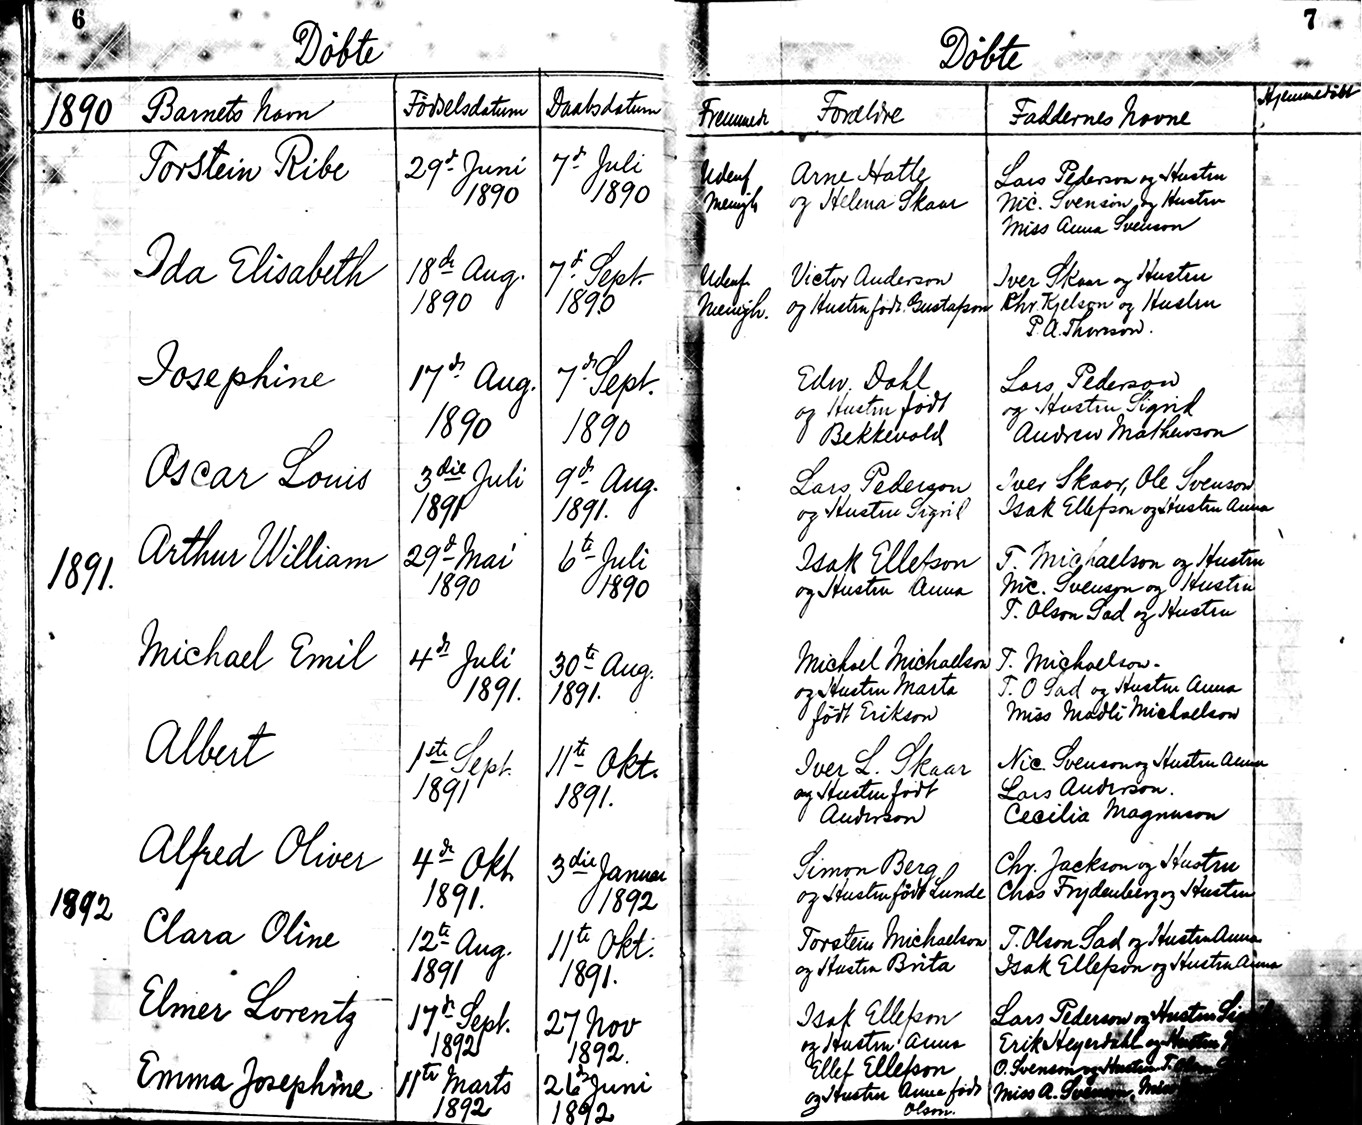 6
Døbte
1890 Barnets Navn Födselsdatum Daabsdatum
Torstein Ribe 29de Juni 7de Juli
1890 1890
Ida Elisabeth 18de Aug. 7de Sept.
1890 1890
Josephine 17de Aug. 7de Sept.
1890 1890
Oscar Louis 3die Juli 9de Aug.
1891 1891.
1891. Arthur William 29de Mai 6te Juli
1890 1890
Michael Emil 4de Juli 30te Aug.
1891. 1891.
Albert 1ste Sept. 11te Okt.
1891 1891.
Alfred Oliver 4de Okt. 3die Januar
1891. 1892
1892
Clara Oline 12te Aug. 11te Okt.
1891 1891.
Elmer Lorentz 17de Sept. 27 Nov
1892 1892.
Emma Josephine 11te Marts 26de Juni
1892 1892
7
Døbte
Fremmede Forældre Faddernes Navne Hjemmedöbt
Udenf. Arne Hatle Lars Pederson og Hustru
Menigh og Helena Skaar Nic. Svenson og Hustru
Miss Anna Svenson
Udenf. Victor Anderson Iver Skaar og Hustru
Menigh. og Hustru födt Gustafson Chr. Kjelson og Hustru
P. A. Thorson.
Edw. Dahl Lars Pederson
og Hustru födt og Hustru Sigrid
Bekkevold Andrew Mathewson
Lars Pederson Iver Skaar, Ole Svenson
og Hustru Sigrid Isak Ellefson og Hustru Anna
Isak Ellefson T. Michaelson og Hustru
og Hustru Anna Nic. Svenson og Hustru
T. Olson Sad og Hustru
Michael Michaelson T. Michaelson.
og Hustru Marta T. O Sad og Hustru Anna
födt Erikson Miss Madli Michaelson
Iver L. Skaar Nic. Svenson og Hustru Anna
og Hustru födt Lars Anderson.
Anderson Cecilia Magnuson
Simon Berg Chr. Jackson og Hustru
og Hustru födt Lunde Chas Frydenberg og Hustru
Torstein Michaelson T. Olson Sad og Hustru Anna
og Hustru Brita Isak Ellefson og Hustru Anna
Isak Ellefson Lars Pederson og Hustru
og Hustru Anna Erik Heyerdahl og Hustru
Ellef Ellefson O. Svenson og Hustru T. Olson
og Hustru Anna födt Miss A. Svenson, Miss
Olson.